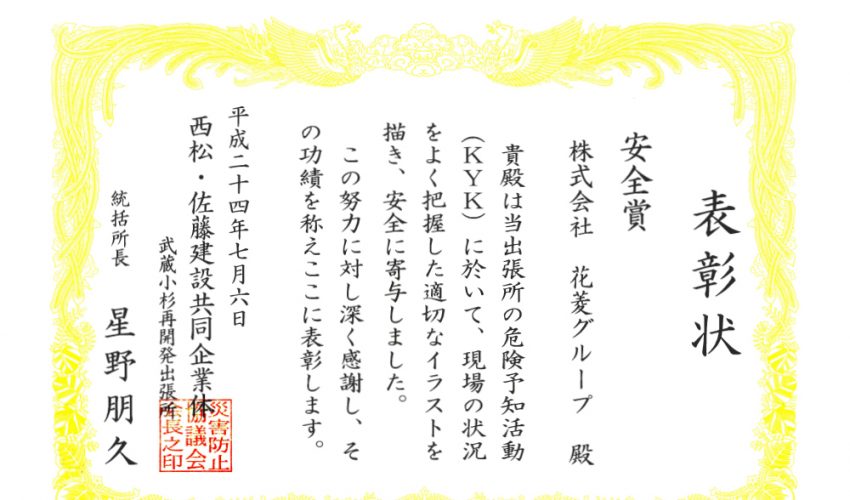 表彰状
安全賞
株式会社 花菱グループ 殿
貴殿は当出張所の危険予知活動
（ＫＹＫ）に於いて、現場の状況
をよく把握した適切なイラストを
描き、安全に寄与しました。
この努力に対し深く感謝し、そ
の功績を称えここに表彰します。
平成二十四年七月六日
西松・佐藤建設共同企業体
武蔵小杉再開発出張所
統括所長 星野朋久
災害防止
協議会
会長之印